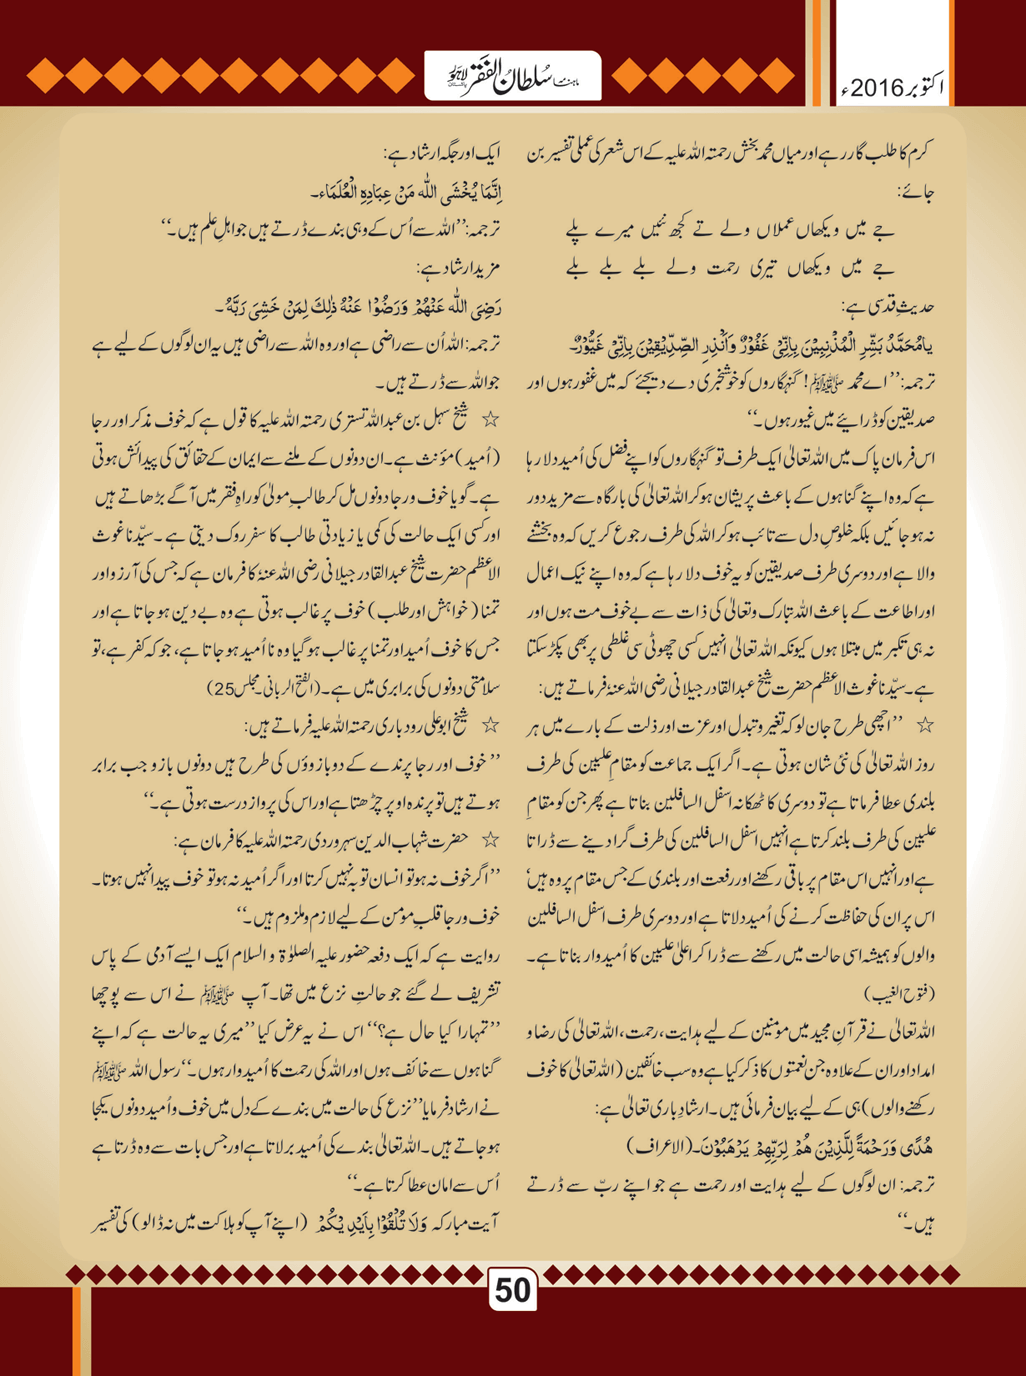 اکتوبر 2016ء
ماہنامہ سلطان الفقر لاہور
کرم کا طلب گار رہے اور میاں محمد بخش رحمتہ اللہ علیہ کے اس شعر کی عملی تفسیر بن
جائے:
جے میں ویکھاں عملاں ولے تے کجھ نئیں میرے پلے
جے میں ویکھاں تیری رحمت ولے بلے بلے بلے
حدیثِ قدسی ہے:
یامُحَمَّدُ بَشِّرِ الْمُذْنِبِیْنَ بِاِنِّیْ غَفُوْرٌ وَاَنْذِرِ الصِّدِّیْقِیْنَ بِاِنِّیْ غَیُّوْرٌ۔
ترجمہ:’’اے محمد ﷺ! گنہگاروں کو خوشخبری دے دیجئے کہ میں غفور ہوں اور
صدیقین کو ڈرائیے میں غیور ہوں۔‘‘
اس فرمان پاک میں اللہ تعالیٰ ایک طرف تو گنہگاروں کو اپنے فضل کی اُمید دلا رہا
ہے کہ وہ اپنے گناہوں کے باعث پریشان ہو کر اللہ تعالیٰ کی بارگاہ سے مزید دور
نہ ہو جائیں بلکہ خلوصِ دل سے تائب ہو کر اللہ کی طرف رجوع کریں کہ وہ بخشنے
والا ہے اور دوسری طرف صدیقین کو یہ خوف دلا رہا ہے کہ وہ اپنے نیک اعمال
اور اطاعت کے باعث اللہ تبارک وتعالیٰ کی ذات سے بے خوف مت ہوں اور
نہ ہی تکبر میں مبتلا ہوں کیونکہ اللہ تعالیٰ انہیں کسی چھوٹی سی غلطی پر بھی پکڑ سکتا
ہے۔سیّدنا غوث الاعظم حضرت شیخ عبدالقادر جیلانی رضی اللہ عنہٗ فرماتے ہیں:
☆ ’’اچھی طرح جان لو کہ تغیر و تبدل اور عزت اور ذلت کے بارے میں ہر
روز اللہ تعالیٰ کی نئی شان ہوتی ہے۔ اگر ایک جماعت کو مقامِ علیین کی طرف
بلندی عطا فرماتا ہے تو دوسری کا ٹھکانہ اسفل السافلین بناتا ہے پھر جن کو مقامِ
علیین کی طرف بلند کرتا ہے انہیں اسفل السافلین کی طرف گرا دینے سے ڈراتا
ہے اور انہیں اس مقام پر باقی رکھنے اور رفعت اور بلندی کے جس مقام پر وہ ہیں‘
اس پر ان کی حفاظت کرنے کی اُمید دلاتا ہے اور دوسری طرف اسفل السافلین
والوں کو ہمیشہ اسی حالت میں رکھنے سے ڈرا کر اعلیٰ علیین کا اُمیدوار بناتا ہے۔
(فتوح الغیب)
اللہ تعالیٰ نے قرآنِ مجید میں مومنین کے لیے ہدایت، رحمت، اللہ تعالیٰ کی رضا و
امداد اور ان کے علاوہ جن نعمتوں کا ذکر کیا ہے وہ سب خائفین (اللہ تعالیٰ کا خوف
رکھنے والوں) ہی کے لیے بیان فرمائی ہیں۔ ارشادِ باری تعالیٰ ہے:
ھُدًی وَرَحْمَۃً لِّلَّذِیْنَ ھُمْ لِرَبِّھِمْ یَرْھَبُوْنَ۔(الاعراف)
ترجمہ: ان لوگوں کے لیے ہدایت اور رحمت ہے جو اپنے ربّ سے ڈرتے
ہیں۔‘‘
ایک اور جگہ ارشاد ہے:
اِنَّمَا یُخْشَی اللّٰہ مَنْ عِبَادِہِ الْعُلَمَاء۔
ترجمہ:’’اللہ سے اُس کے وہی بندے ڈرتے ہیں جو اہلِ علم ہیں۔‘‘
مزید ارشاد ہے:
رَضِیَ اللّٰہ عَنْھُمْ وَرَضُوْا عَنْہُ ذٰلِکَ لِمَنْ خَشِیَ رَبَّہُ۔
ترجمہ: اللہ اُن سے راضی ہے اور وہ اللہ سے راضی ہیں یہ ان لوگوں کے لیے ہے
جو اللہ سے ڈرتے ہیں۔
☆ شیخ سہل بن عبداللہ تستری رحمتہ اللہ علیہ کا قول ہے کہ خوف مذکر اور رجا
(اُمید) مؤنث ہے۔ ان دونوں کے ملنے سے ایمان کے حقائق کی پیدائش ہوتی
ہے۔ گویا خوف و رجا دونوں مل کر طالبِ مولیٰ کو راہِ فقر میں آگے بڑھاتے ہیں
اور کسی ایک حالت کی کمی یا زیادتی طالب کا سفر روک دیتی ہے۔ سیّدنا غوث
الاعظم حضرت شیخ عبدالقادر جیلانی رضی اللہ عنہٗ کا فرمان ہے کہ جس کی آرزو اور
تمنا (خواہش اور طلب) خوف پر غالب ہوتی ہے وہ بے دین ہو جاتا ہے اور
جس کا خوف اُمید اور تمنا پر غالب ہو گیا وہ نا اُمید ہو جاتا ہے، جو کہ کفر ہے، تو
سلامتی دونوں کی برابری میں ہے۔ (الفتح الربانی۔مجلس 25)
☆ شیخ ابو علی رودباری رحمتہ اللہ علیہ فرماتے ہیں:
’’خوف اور رجا پرندے کے دو بازوؤں کی طرح ہیں دونوں بازو جب برابر
ہوتے ہیں تو پرندہ اوپر چڑھتا ہے اور اس کی پرواز درست ہوتی ہے۔‘‘
☆ حضرت شہاب الدین سہروردی رحمتہ اللہ علیہ کا فرمان ہے:
’’اگر خوف نہ ہو تو انسان توبہ نہیں کرتا اور اگر اُمید نہ ہو تو خوف پیدا نہیں ہوتا۔
خوف و رجا قلبِ مؤمن کے لیے لازم و ملزوم ہیں۔‘‘
روایت ہے کہ ایک دفعہ حضور علیہ الصلوٰۃ و السلام ایک ایسے آدمی کے پاس
تشریف لے گئے جو حالتِ نزع میں تھا۔ آپ ﷺ نے اس سے پوچھا
’’تمہارا کیا حال ہے؟‘‘ اس نے یہ عرض کیا ’’میری یہ حالت ہے کہ اپنے
گناہوں سے خائف ہوں اور اللہ کی رحمت کا اُمیدوار ہوں۔‘‘ رسول اللہ ﷺ
نے ارشاد فرمایا ’’نزع کی حالت میں بندے کے دل میں خوف و اُمید دونوں یکجا
ہو جاتے ہیں۔ اللہ تعالیٰ بندے کی اُمید بر لاتا ہے اور جس بات سے وہ ڈرتا ہے
اُس سے امان عطا کرتا ہے۔‘‘
آیت مبارکہ وَلَا تُلْقُوْا بِاَیْدِیْکُمْ (اپنے آپ کو ہلاکت میں نہ ڈالو) کی تفسیر
50